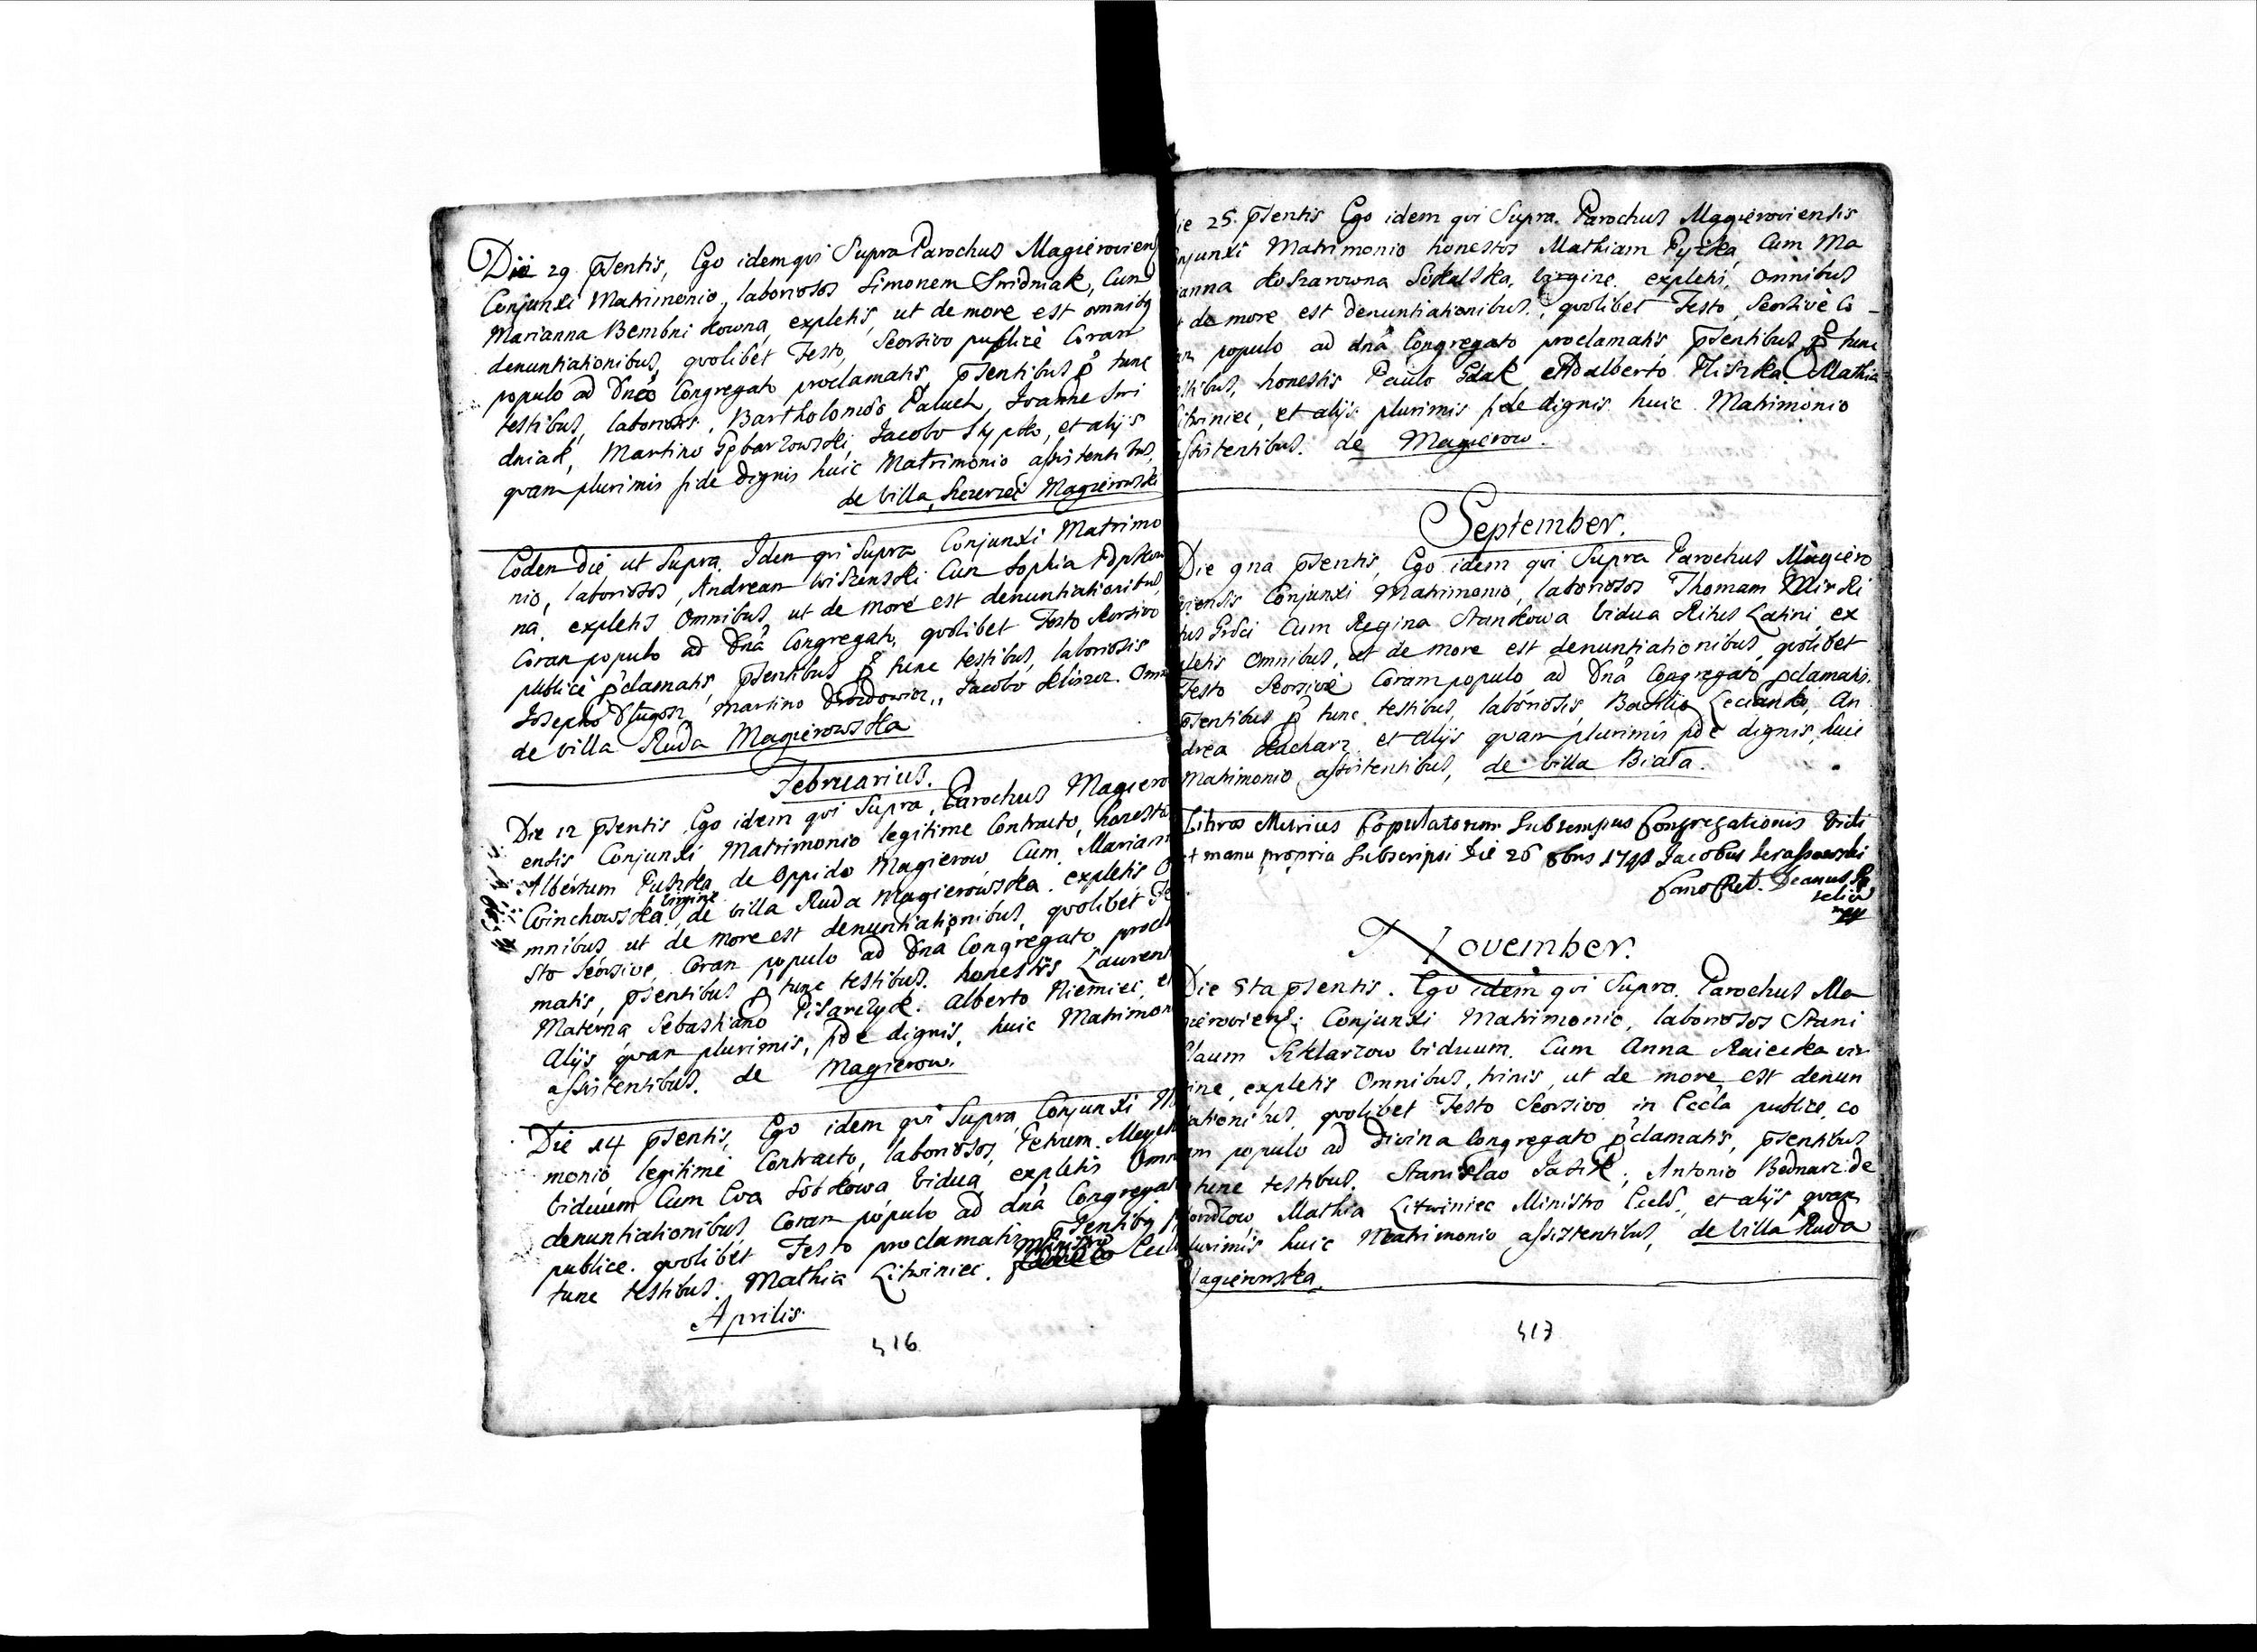 Die 29 pſentis, Ego idem qvi Supra Parochus Magieroviens
Conjunxi Matrimonio, laboriosos Simonem Sridniak, Cum
Marianna Bembni kowna, expletis, ut de more est omnibꝫ
denuntiationibus, qvolibet Festo, Seorsivo publicè Coram
populo ad Congregato proclamatis pſentibus p tunc
testibus, laborios, Bartholomeo Paluch, Joanne Sri
dniak, Martino Gębarzowski, Jacobo Stypko, et alijs
qvam plurimis fide dignis huic Matrimonio assistentibus,
de villa, Magierowski
Eodem die ut Supra. Idem qvi Supra Conjunxi Matrimo
nio, laboriosos, Andream Wiszenski Cum Sophia
na, expletis Omnibus, ut de more est denuntiationibus,
Coram populo ad dna Congregato, qvolibet Festo Seorsivo
publicè pclamatis, pſentibus p tunc testibus, laboriosis
Josepho Długosz, Martino Drozdowicz, Jacobo
de villa Ruda Magierowska
Februarius.
Die 12 pſentis Ego idem qvi Supra, Parochus Magiero
ensis Conjunxi Matrimonio legitime Contracto, honesto
Albertum Puszka de Oppido Magierow Cum Mariann
virgine
de villa Ruda Magierowska. expletis O
mnibus ut de more est denuntiationibus, qvolibet Fe
sto Seorsive, Coram populo ad Dna Congregato procla
matis, pſentibus p tunc testibus. honestis Laurent
Materna Sebastiano Pisarczyk. Alberto Niemiec, et
Alijs qvam plurimis, fide dignis, huic Matrimon
assistentibus. de Magierow.
Die 14 pſentis, Ego idem qvi Supra, Conjunxi M
monio legitime Contracto, laboriosos, Petrum
viduum Cum Eva Sobkowa vidua, expletis Omn
denuntiationibus, Coram populo ad dna Congregat
publice. qvolibet Festo proclamatis pſentibꝫ p
Ministro
tunc testibus. Mathia Litwiniec. Eccl
Aprilis.
416
ie 25. pſentis Ego idem qvi Supra. Parochus Magieroviensis
njunxi Matrimonio honestos Mathiam Pyżka, Cum Ma
ianna Koszarowna Sokalska, virgine. expletis, Omnibus
t de more est denuntiationibus, qvolibet Festo, Seorsivè Co-
am populo ad dna Congregato proclamatis pſentibus p tunc
stibus, honestis Paulo Gdak, Adalberto Mathia
itwiniec, et alijs plurimis fide dignis huic Matrimonio
ssistentibus. de Magierow.
September.
Die 9na pſentis, Ego idem qvi Supra Parochus Magiero
viensis Conjunxi Matrimonio, laboriosos Thomam Mirski
tus Græci Cum Regina Stankowa vidua Ritus Latini, ex
pletis Omnibus, ut de more est denuntiationibus, qvolibet
Festo Seorsivè Coram populo ad Dna Congregato pclamatis.
pſentibus p tunc testibus, laboriosis, Basilio An
drea Kacharz et alijs qvam plurimis fide dignis, huic
Matrimonio assistentibus, de villa Biała.
Libros Metrices Copulatorum Sub tempus Congregationis Vidi
et manu propria Subscripsi die 26 8bris 1741 Jacobus
Decanus
November.
Die 5ta pſentis. Ego idem qvi Supra. Parochus Ma
gieroviens: Conjunxi Matrimonio, laboriosos Stani
slaum Szklarzow viduum. Cum Anna Raiecka vir
gine, expletis Omnibus, trinis, ut de more est denun
tiationibus, qvolibet Festo Seorsivo in Eccla publice, co
ram populo ad Divina Congregato pclamatis, pſentibus
tunc testibus. Stanislao Jasik, Antonio Bednarz de
Mathia Litwiniec Ministro Eccls, et alijs qvam
plurimis huic Matrimonio assistentibus, de villa Ruda
Magierowska.
417